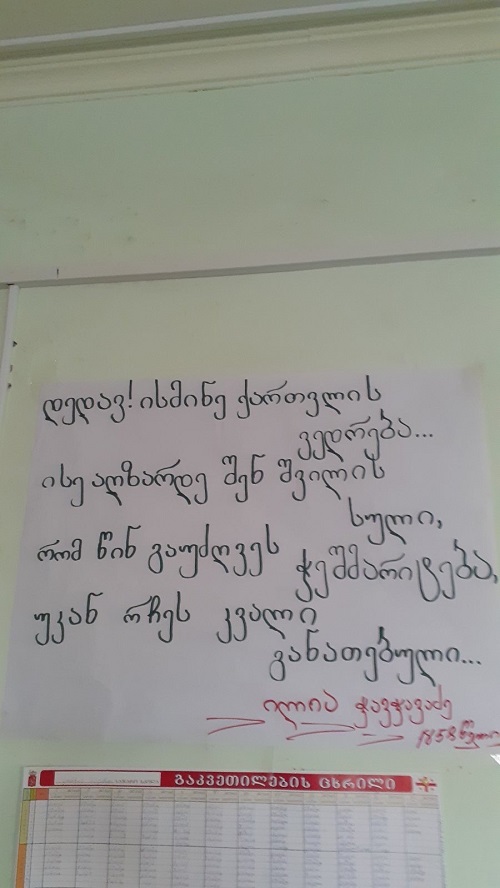 დედავ! ისმინე ქართვლის
ვედრება...
ისე აღზარდე შენ შვილის
სული,
რომ წინ გაუძღვეს
ჭეშმარიტება,
უკან რჩეს კვალი
განათებული...
ილია ჭავჭავაძე
1858 წელი
გაკვეთილების ცხრილი